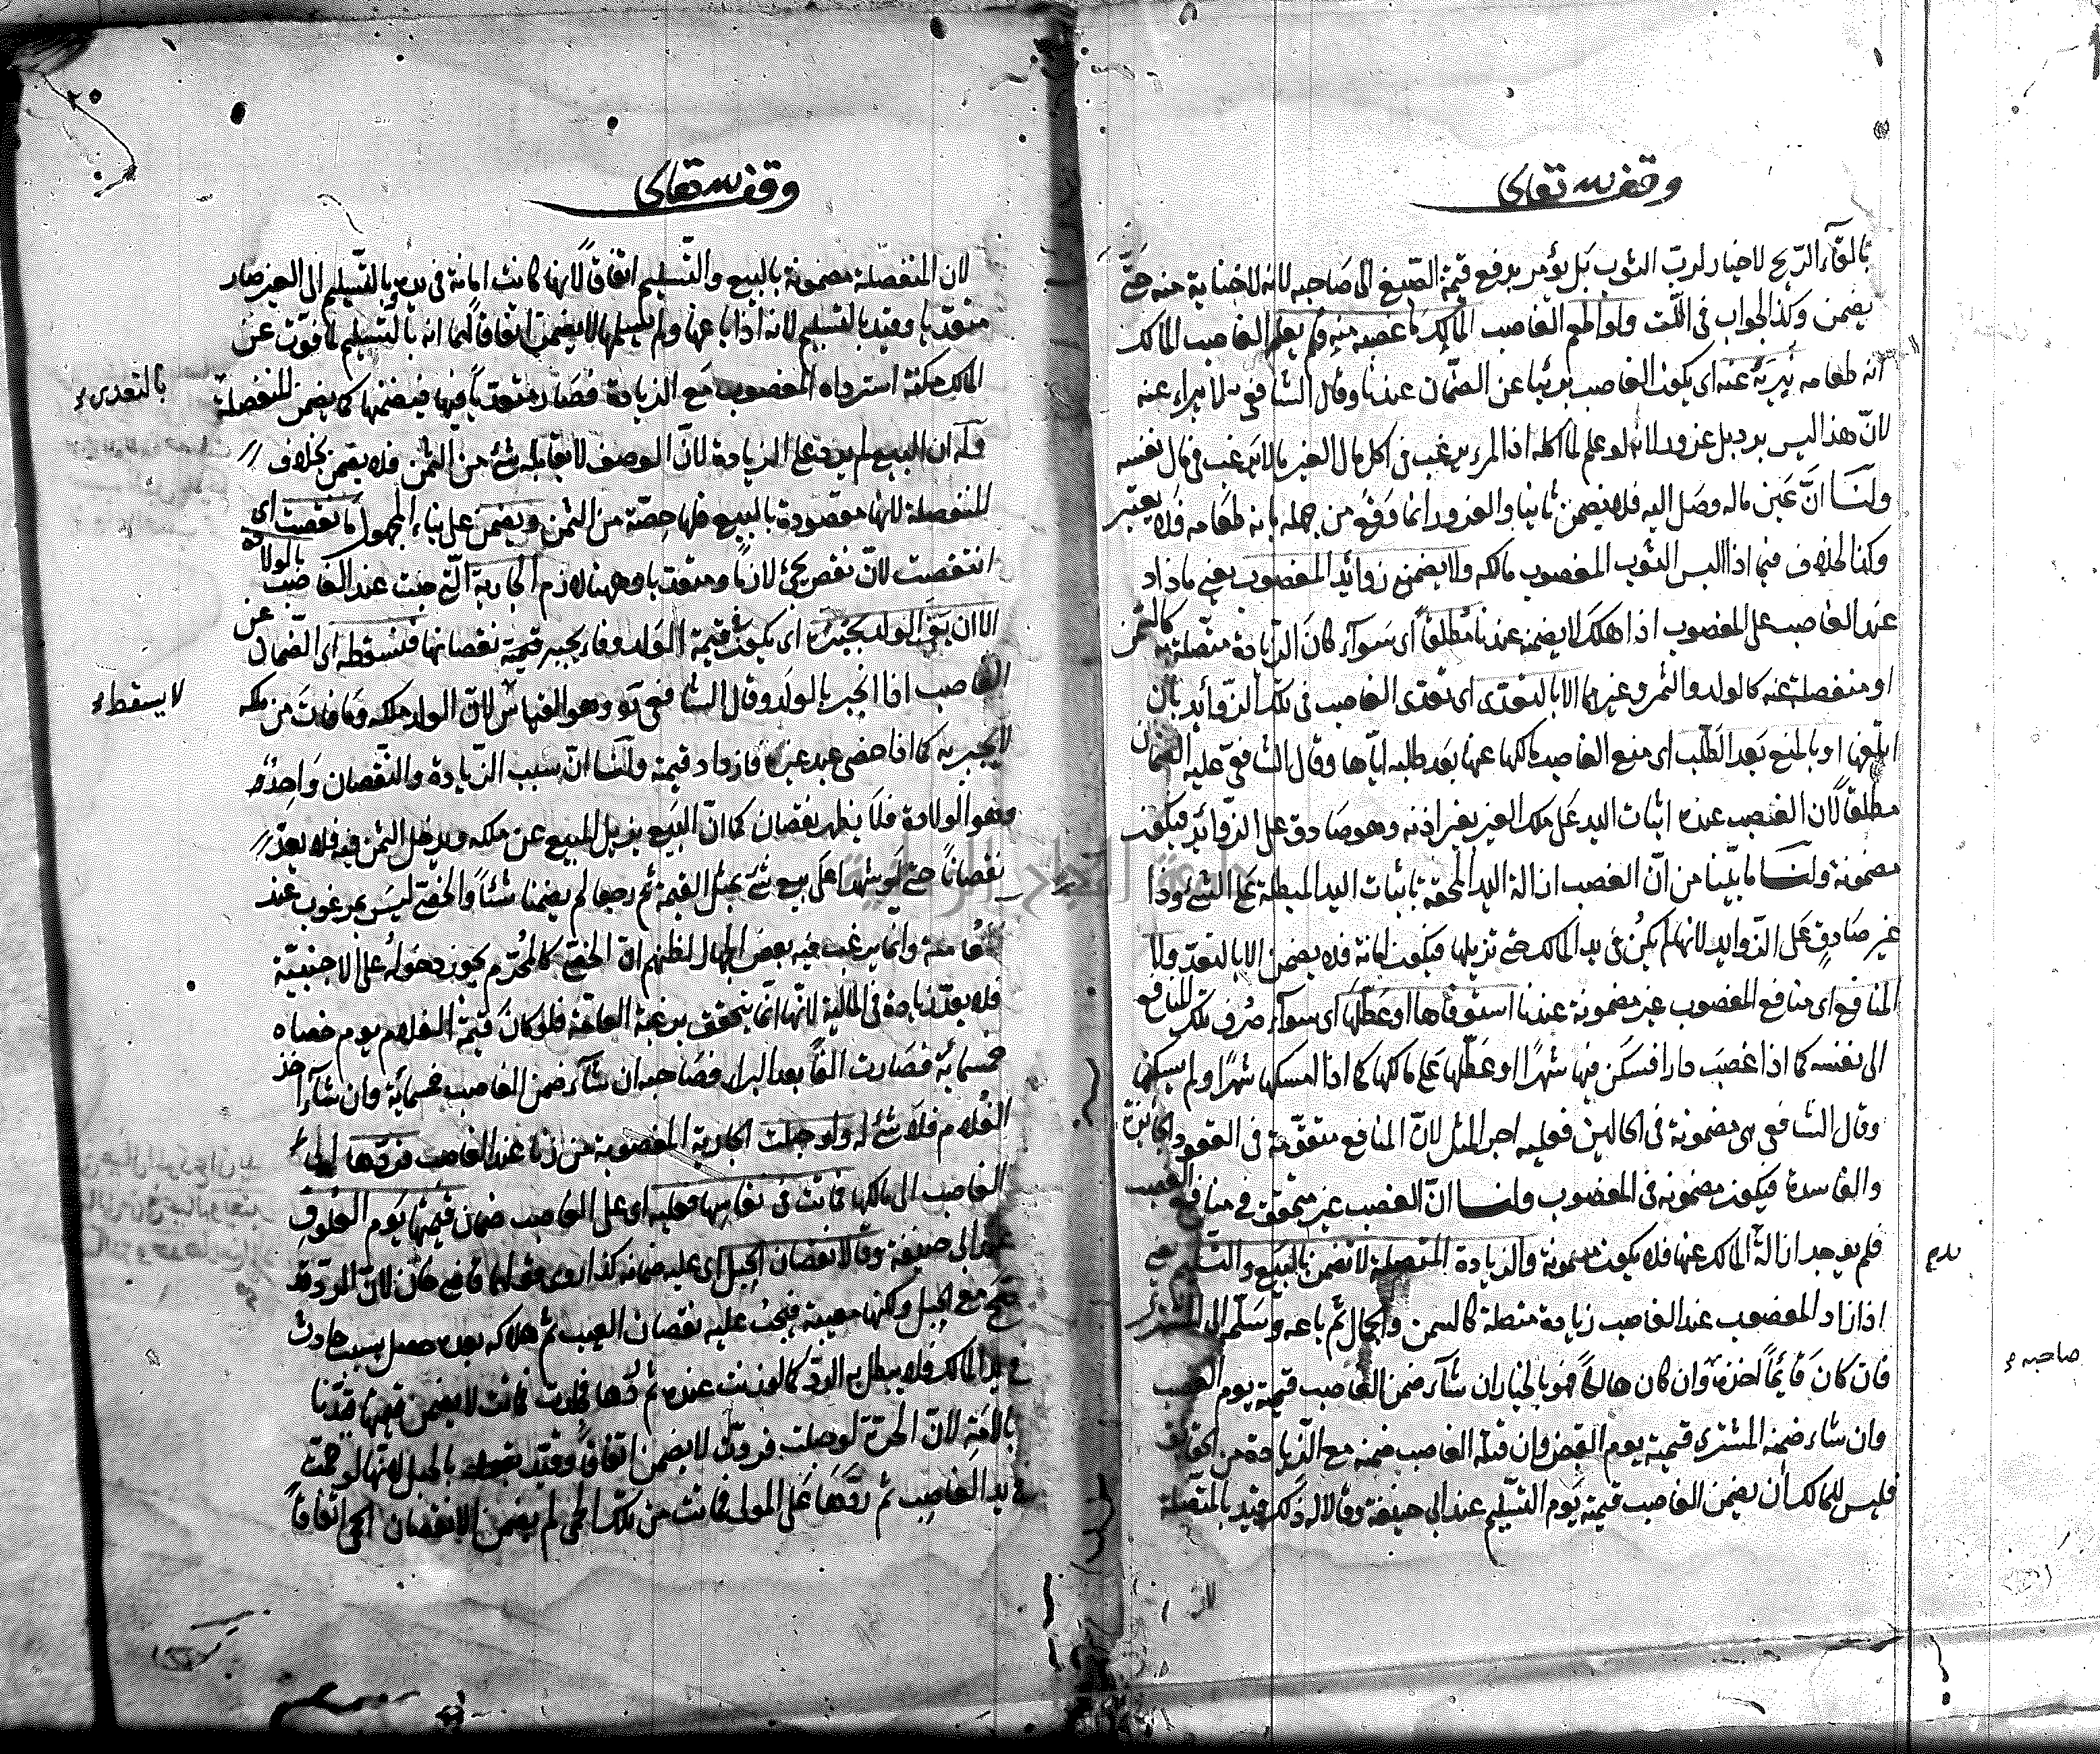 وقف لله تعالى
بالقاء الريح لا خيار لرب الثوب بل يؤمر بدفع قيمة الصبغ الى صاحبه لانه لا جناية منه حتى
يضمن وكذا الجواب في اللت ولو اطعم الغاصب المالك ما غصبه منه ولم يعلم الغاصب المالك
انه طعامه يبرئه عنه اى يكون الغاصب بريئا عن الضمان عندنا وقال الشافعى لا يبراء عنه
لان هذا ليس برد بل غرور لانه لو علم لما اكله اذ المرء يرغب في اكل مال الغير ما لا يرغب في مال نفسه
ولنا ان عين ماله وصل اليه فلا يضمن ثانيا والغرور انما وقع من جهله بانه طعامه فلا يعتبر
وكذا الخلاف فيما اذا البس الثوب المغصوب مالكه ولا يضمن زوائد المغصوب يعني ما زاد
عند الغاصب على المغصوب اذا هلك لا يضمنه عندنا مطلقا اى سوآء كان الزيادة متصلة به كالسمن
او منفصلة عنه كالولد والثمر وغيرها الا بالتعدى اى تعدى الغاصب في تلك الزوائد بان
اتلفها او بالمنع بعد الطلب اى منع الغاصب مالكها عنها بعد طلبه اياها وقال الشافعى عليه الضمان
مطلقا لان الغصب عنده اثبات اليد على ملك الغير بغير اذنه وهو صادق على الزوائد فيكون
مضمونة ولنا ما بينا من ان الغصب ازالة اليد المحقة باثبات اليد المبطلة على الشئ وذا
غير صادق على الزوايد لانها لم يكن في يد المالك حتى تزيلها فيكون امانة فلا يضمن الا بالتعدى ولا
المنافع اى منافع المغصوب غير مضمونة عندنا استوفاها او عطلها اى سوآء صرف تلك المنافع
الى نفسه كما اذا غصب دارا فسكن فيها شهرا او عطلها على مالكها كما اذا امسكها شهرا ولم يسكنها
وقال الشافعى هى مضمونة في الحالين فعليه اجر المثل لان المنافع متقومة في العقود الجائزة
والفاسدة فيكون مضمونة في المغصوب ولنا ان الغصب غير متحقق في منافع الغصب
فلم يوجد ازالة المالك عنها فلا يكون مضمونة والزيادة المتصلة لا تضمن بالبيع والتسليم يعني
اذا زاد المغصوب عند الغاصب زيادة متصلة كالسمن والجمال ثم باعه وسلمه الى المشترى
فان كان قائما اخذه وان كان هالكا فهو بالخيار ان شآء ضمن الغاصب قيمته يوم الغصب
صاحبه
وان شاء ضمن المشترى قيمته يوم القبض وان قتله الغاصب ضمنه مع الزيادة من
فليس للمالك ان يضمن الغاصب قيمته يوم التسليم عند ابى حنيفة وقالا له ذلك وقيد بالمتصلة
وقف لله تعالى
لان المنفصلة مضمونة بالبيع والتسليم اتفاقا لانها كانت امانة في يده وبالتسليم الى الغير صار
متعديا وقيد بالتسليم لانه اذا باعها ولم يسلمها لا يضمن اتفاقا لهما انه بالتسليم فوت عن
المالك مكنة استرداه المغصوب مع الزيادة فصار متعديا فيها فيضمنها كما يضمن المنفصلة
بالتعدى
وله ان البيع لم يرد على الزيادة لان الوصف لا يقابله شئ من الثمن فلا يضمن بخلاف
المنفصلة لانها مقصودة بالبيع فلها حصة من الثمن ويضمن على بناء المجهول ما نقصت اى
انتقصت لان نقص يجئ لازما ومتعديا وههنا لازم الجارية التي حبلت عند الغاصب بالولادة
الا ان بقي الولد يجبره اى يكون قيمة الولد وفاء يجبر قيمته نقصانها فتسقط اى الضمان عن
الغاصب اذا انجبر بالولد وقال الشافعى وهو القياس لان الولد ملكه وما فات من ملكه
لا يسقط
لا يجبر به كما اذا خصى عبد غيره فازداد قيمته ولنا ان سبب الزيادة والنقصان واحد
وهو الولادة فلا يظهر نقصان كما ان البيع يزيل المبيع عن ملكه ويدخل الثمن فيه فلا يعد
نقصانا حتى لو شهدا على بيع شئ بمثل القيمة ثم رجعا لم يضمنا شئا والخصى ليس بمرغوب عند
العامة وانما يرغب فيه بعض الجهال لظنهم ان الخصى كالمحرم يجوز دخوله على الاجنبية
فلا يعد زيادة في المالية لانها انما يتحقق برغبة العامة فلو كان قيمة الغلام يوم خصاه
خمسمائة فصارت الفا بعد البرء فصاحبه ان شآء ضمن الغاصب خمسمائة وان شآء اخذ
الغلام فلا شئ له ولو حبلت الجارية المغصوبة من زنا عند الغاصب فردها اى
الغاصب الى مالكها فماتت في نفاسها فعليه اى على الغاصب ضمان قيمتها يوم العلوق
عند ابى حنيفة وقالا نقصان الحبل اى عليه ضمانه كذا روى قولهما قاضي خان لان الرد وقد
صح مع الحبل ولكنها معيبة فيجب عليه نقصان العيب ثم هلاكه بعده حصل بسبب حادث
في يد المالك فلا يبطل به الرد كما لو زنت عنده ثم ردها فجلدت فماتت لا يضمن قيمتها قيدنا
بالامة لان الحرة لو حبلت فردت لا يضمن اتفاقا وقيد بالحبل لانها لو حمت
في يد الغاصب ثم ردها على المولى فماتت من تلك الحمى لم يضمن الا نقصان الحمى اتفاقا